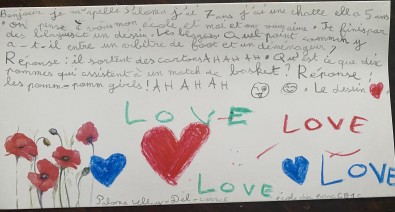 Bonjour je m'apelle Paloma j'ai 7 ans j'ai une chatte ell a 5 ans
on pense a vous mon école et moi on vous aime. Je finis par
des blagues et un dessin. Les blagues Quel point commun y
a-t-il entre un arbitre de foot et un déménageur?
Réponse: il sortent des cartons AHAHAH. Qu'est ce que dix
pommes qui assistent à un match de basket? Réponse:
les pom-poms girls! AHAHAH Le dessin
LOVE LOVE
LOVE LOVE
Paloma